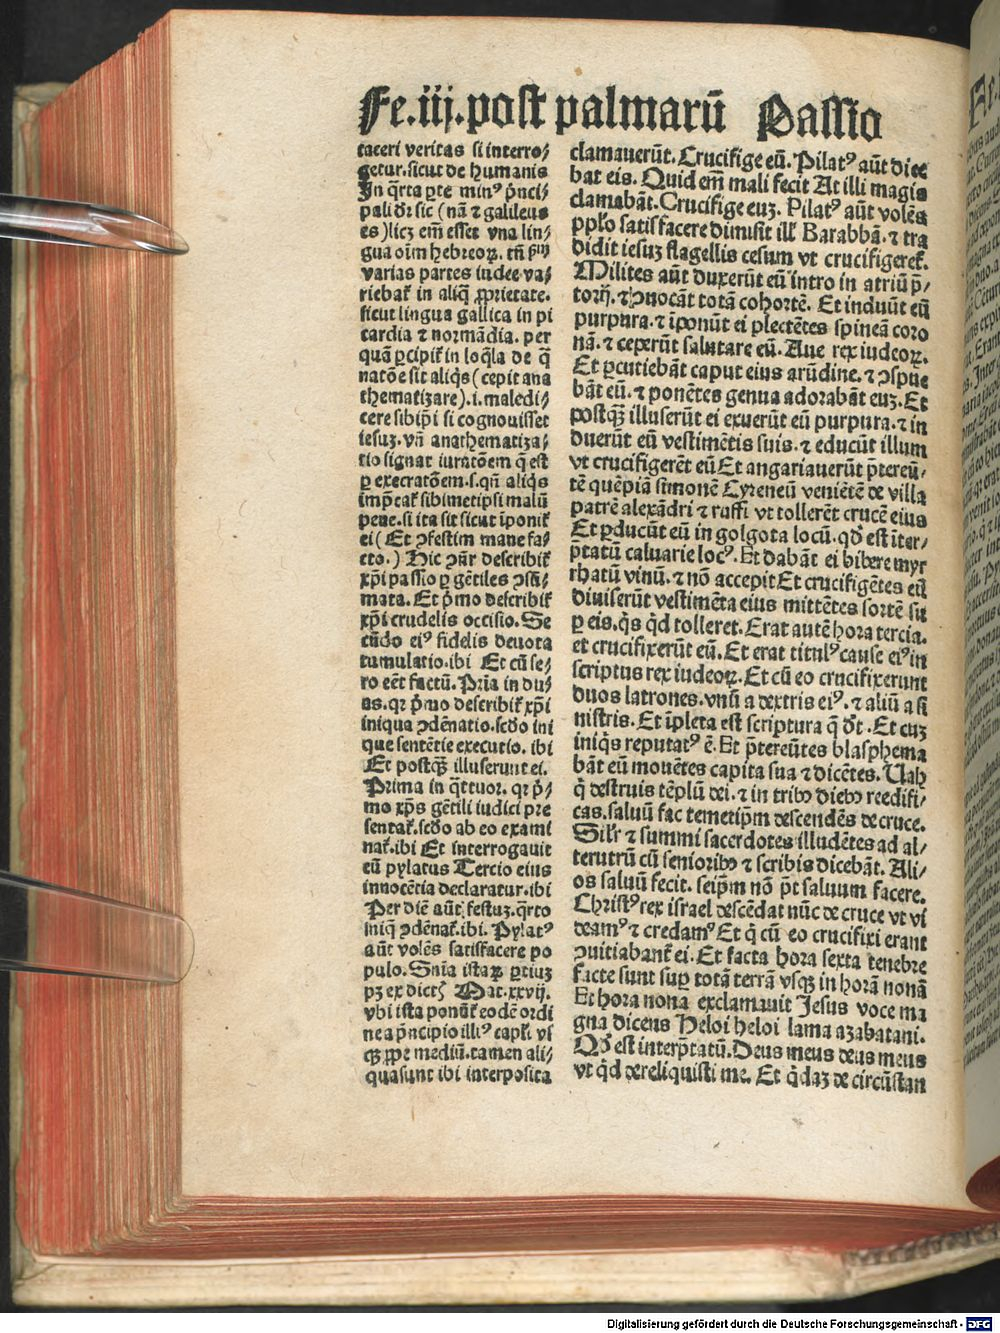 Fe.iij.post palmarū Passio
taceri veritas si interro⸗
getur.sicut de humanis
In q̄rta ꝑte min⁹ p̄nci⸗
pali dr̄ sic (nā ⁊ galileus
es) licꝫ em̄ esset vna lin⸗
gua oīm hebreoꝝ. tn̄ ẜm
varias partes iudee va⸗
riebat᷑ in aliq̄ ꝓprietate.
sicut lingua gallica in pi
cardia ⁊ normādia. per
quā ꝑcipit᷑ in loq̄la de q̄
natōe sit aliq̇s (cepit ana
thematizare).i. maledi⸗
cere sibip̄i si cognouisset
iesuꝫ. vn̄ anathematiza⸗
tio signat iuratōem q̄ est
ꝑ execratōem.s.qn̄ aliq̇s
imp̄cat᷑ sibimetipsi malū
pene.si ita sit sicut īponit᷑
ei (Et ↄfestim mane fa⸗
cto.) Hic ↄn̄r describit᷑
xp̄i passio ꝑ gētiles ↄsū⸗
mata. Et p̄mo describit᷑
xp̄i crudelis occisio. Se
cūdo ei⁹ fidelis deuota
tumulatio.ibi Et cū se⸗
ro eēt factū. Pr̄ia in du⸗
as.qꝛ p̄mo describit᷑ xp̄i
iniqua ↄdēnatio.scd̄o ini
que sentētie executio. ibi
Et postqꝫ illuserunt ei.
Prima in q̄ttuor. qꝛ p̄⸗
mo xp̄s gētili iudici pre
sentat᷑.scd̄o ab eo exami
nat᷑.ibi Et interrogauit
eū pylatus Tercio eius
innocētia declaratur.ibi
Per diē aūt festuꝫ.q̄rto
iniq̄ ↄdēnat᷑.ibi. Pylat⁹
aūt volēs satisfacere po
pulo. Sn̄ia istaꝝ ꝑtiuꝫ
pꝫ ex dict̄ Mat.xxvij.
vbi ista ponūt᷑ eodē ordi
ne a p̄ncipio illi⁹ capl̄i vs
qꝫ ꝓpe mediū.tamen ali⸗
qua sunt ibi interposita
clamauerūt. Crucifige eū. Pilat⁹ aūt dice
bat eis. Quid em̄ mali fecit At illi magis
clamabāt. Crucifige euꝫ. Pilat⁹ aūt volēs
pplo satisfacere dimisit ill' Barabbā. ⁊ tra
didit iesuꝫ flagellis cesum vt crucifigeret᷑.
Milites aūt duxerūt eū intro in atriū p̄⸗
torij. ⁊ ↄuocāt totā cohortē. Et induūt eū
purpura. ⁊ īponūt ei plectētes spineā coro
nā. ⁊ ceperūt salutare eū. Aue rex iudeoꝝ.
Et ꝑcutiebāt caput eius arūdine. ⁊ ↄspue
bāt eū. ⁊ ponētes genua adorabāt euꝫ. Et
postqꝫ illuserūt ei exuerūt eū purpura. ⁊ in
duerūt eū vestimētis suis. ⁊ educūt illum
vt crucifigerēt eū Et angariauerūt p̄tereū⸗
tē quēpiā simonē Cyreneū veniētē de villa
patrē alexādri ⁊ ruffi vt tollerēt crucē eius
Et ꝑducūt eū in golgota locū. qd̄ est īter⸗
p̄tatū caluarie loc⁹. Et dabāt ei bibere myr
rhatū vinū. ⁊ nō accepit Et crucifigētes eū
diuiserūt vestimēta eius mittētes sortē su
ꝑ eis.q̇s q̇d tolleret. Erat autē hora tercia.
et crucifixerūt eū. Et erat titul⁹ cause ei⁹ in
scriptus rex iudeoꝝ. Et cū eo crucifixerunt
duos latrones. vnū a dextris ei⁹. ⁊ aliū a si
nistris. Et īpleta est scriptura q̄ dr̄t. Et cuꝫ
iniq̇s reputat⁹ ē. Et p̄tereūtes blasphema
bāt eū mouētes capita sua ⁊ dicētes. Vah
q̇ destruis tēplū dei. ⁊ in tribꝰ diebꝰ reedifi⸗
cas.saluū fac temetip̄m descendēs de cruce.
Silr̄ ⁊ summi sacerdotes illudētes ad al⸗
terutrū cū senioribꝰ ⁊ scribis dicebāt. Ali⸗
os saluū fecit. seip̄m nō p̄t saluum facere.
Christ⁹ rex israel descēdat nūc de cruce vt vi
deam⁹ ⁊ credam⁹ Et q̇ cū eo crucifixi erant
ↄuitiabant᷑ ei. Et facta hora sexta tenebre
facte sunt suꝑ totā terrā vsqꝫ in horā nonā
Et hora nona exclamauit Jesus voce ma
gna dicens Heloi heloi lama azabatani.
Qd̄ est interp̄tatū. Deus meus deus meus
vt q̇d dereliquisti me. Et q̇daꝫ de circūstan
Digitalisierung gefördert durch die Deutsche Forschungsgemeinschaft - DFG